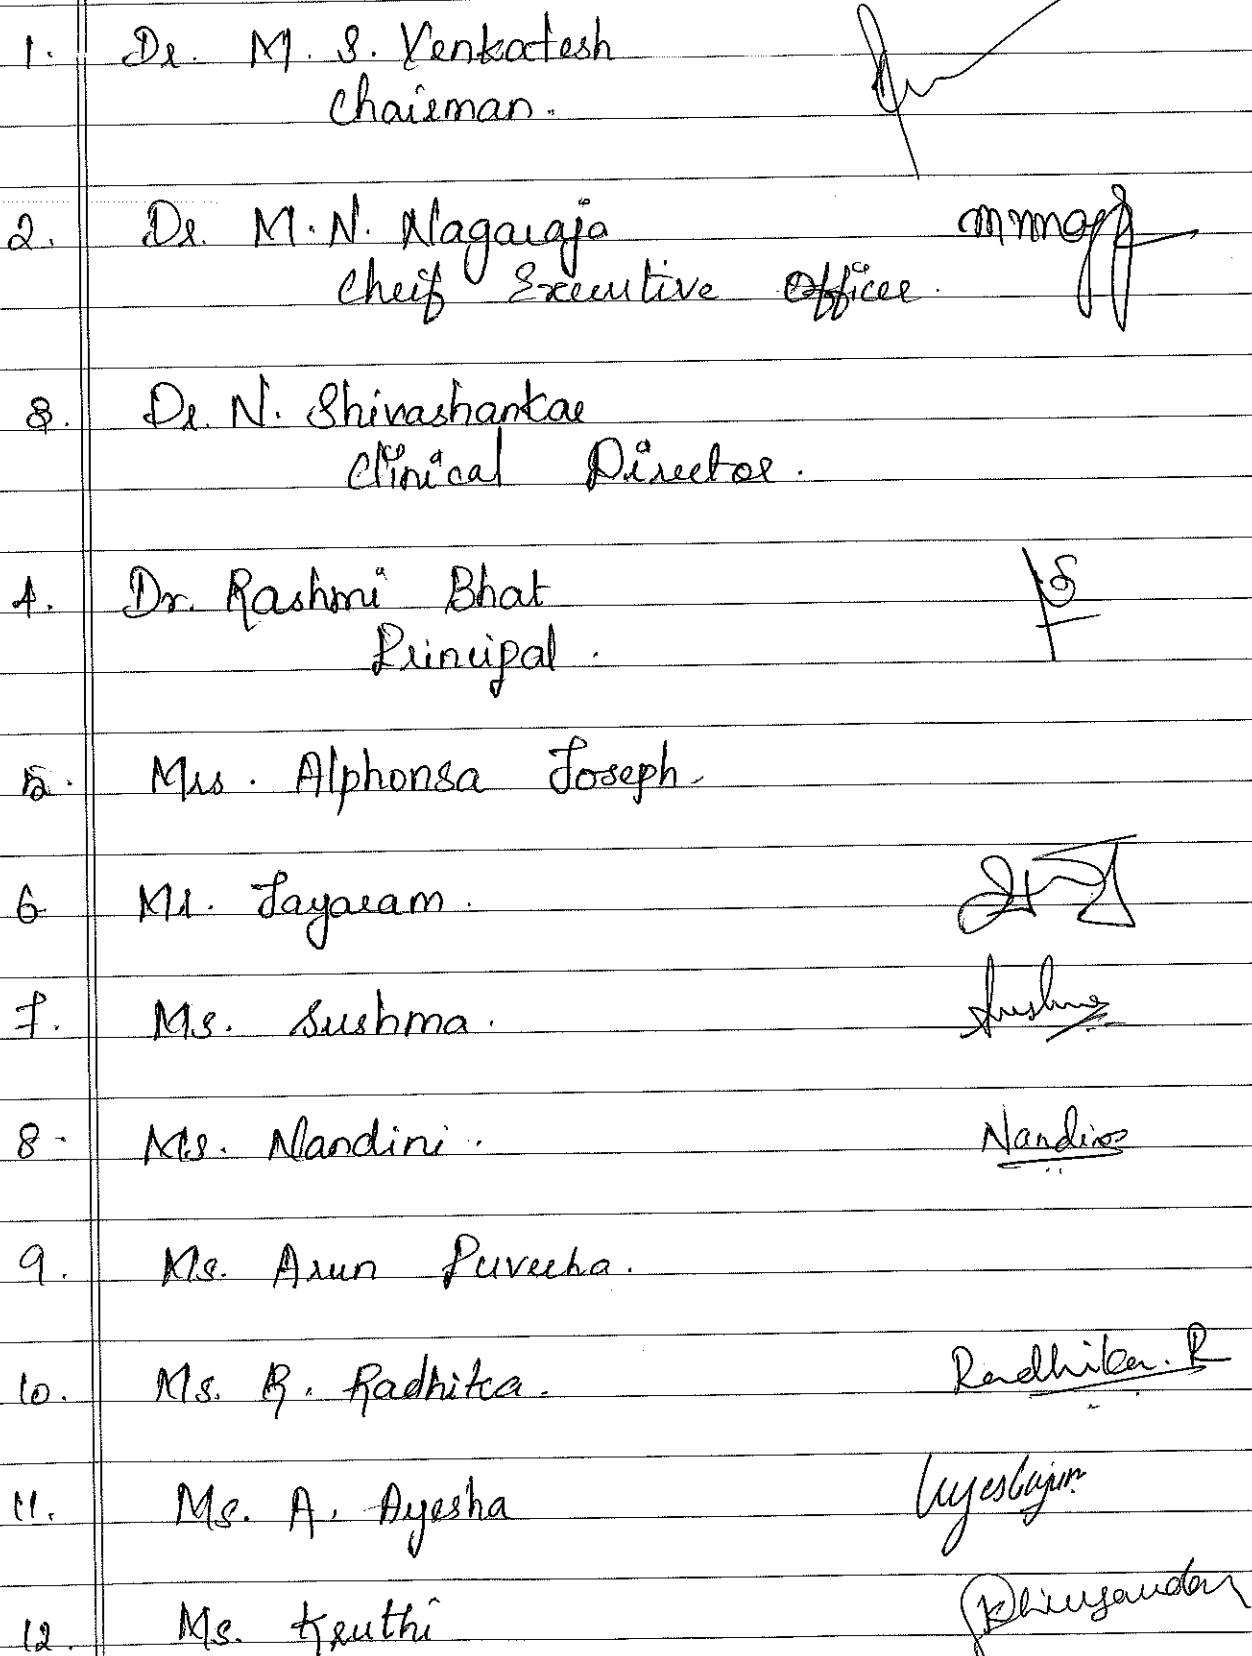 1. Dr. M. S. Venkatesh
Chairman.
2. Dr. M. N. Nagaraja
Cheif Executive Officer.
3. Dr. N. Shivashankar
Clinical Director.
4. Dr. Rashmi Bhat
Principal.
5. Mrs. Alphonsa Joseph.
6 Mr. Jayaram.
7. Ms. Sushma. Sushma
8. Ms. Nandini. Nandini
9. Ms. Arun
10. Ms. R. Radhika. Radhika. R
11. Ms. A. Ayesha
12. Ms. Kruthi